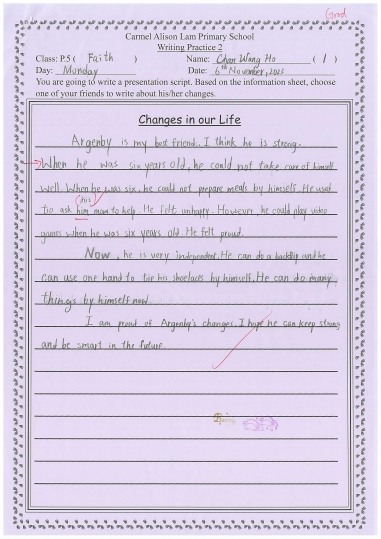 Good
Carmel Alison Lam Primary School
Writing Practice 2
Class: P.5 ( Faith ) Name: Chan Wang Ho ( 1 )
Day: Monday Date: 6th November, 2021
You are going to write a presentation script. Based on the information sheet, choose
one of your friends to write about his/her changes.
Changes in our Life
Argenby is my best friend. I think he is strong.
When he was six years old, he could not take care of himself
well. When he was six, he could not prepare meals by himself. He used
his
to ask him mum to help. He felt unhappy. However, he could play video
games when he was six years old. He felt proud.
Now, he is very independent. He can do a backflip and he
can use one hand to tie his shoelaces by himself. He can do many
things by himself now.
I am proud of Argenby's changes. I hope he can keep strong
and be smart in the future.